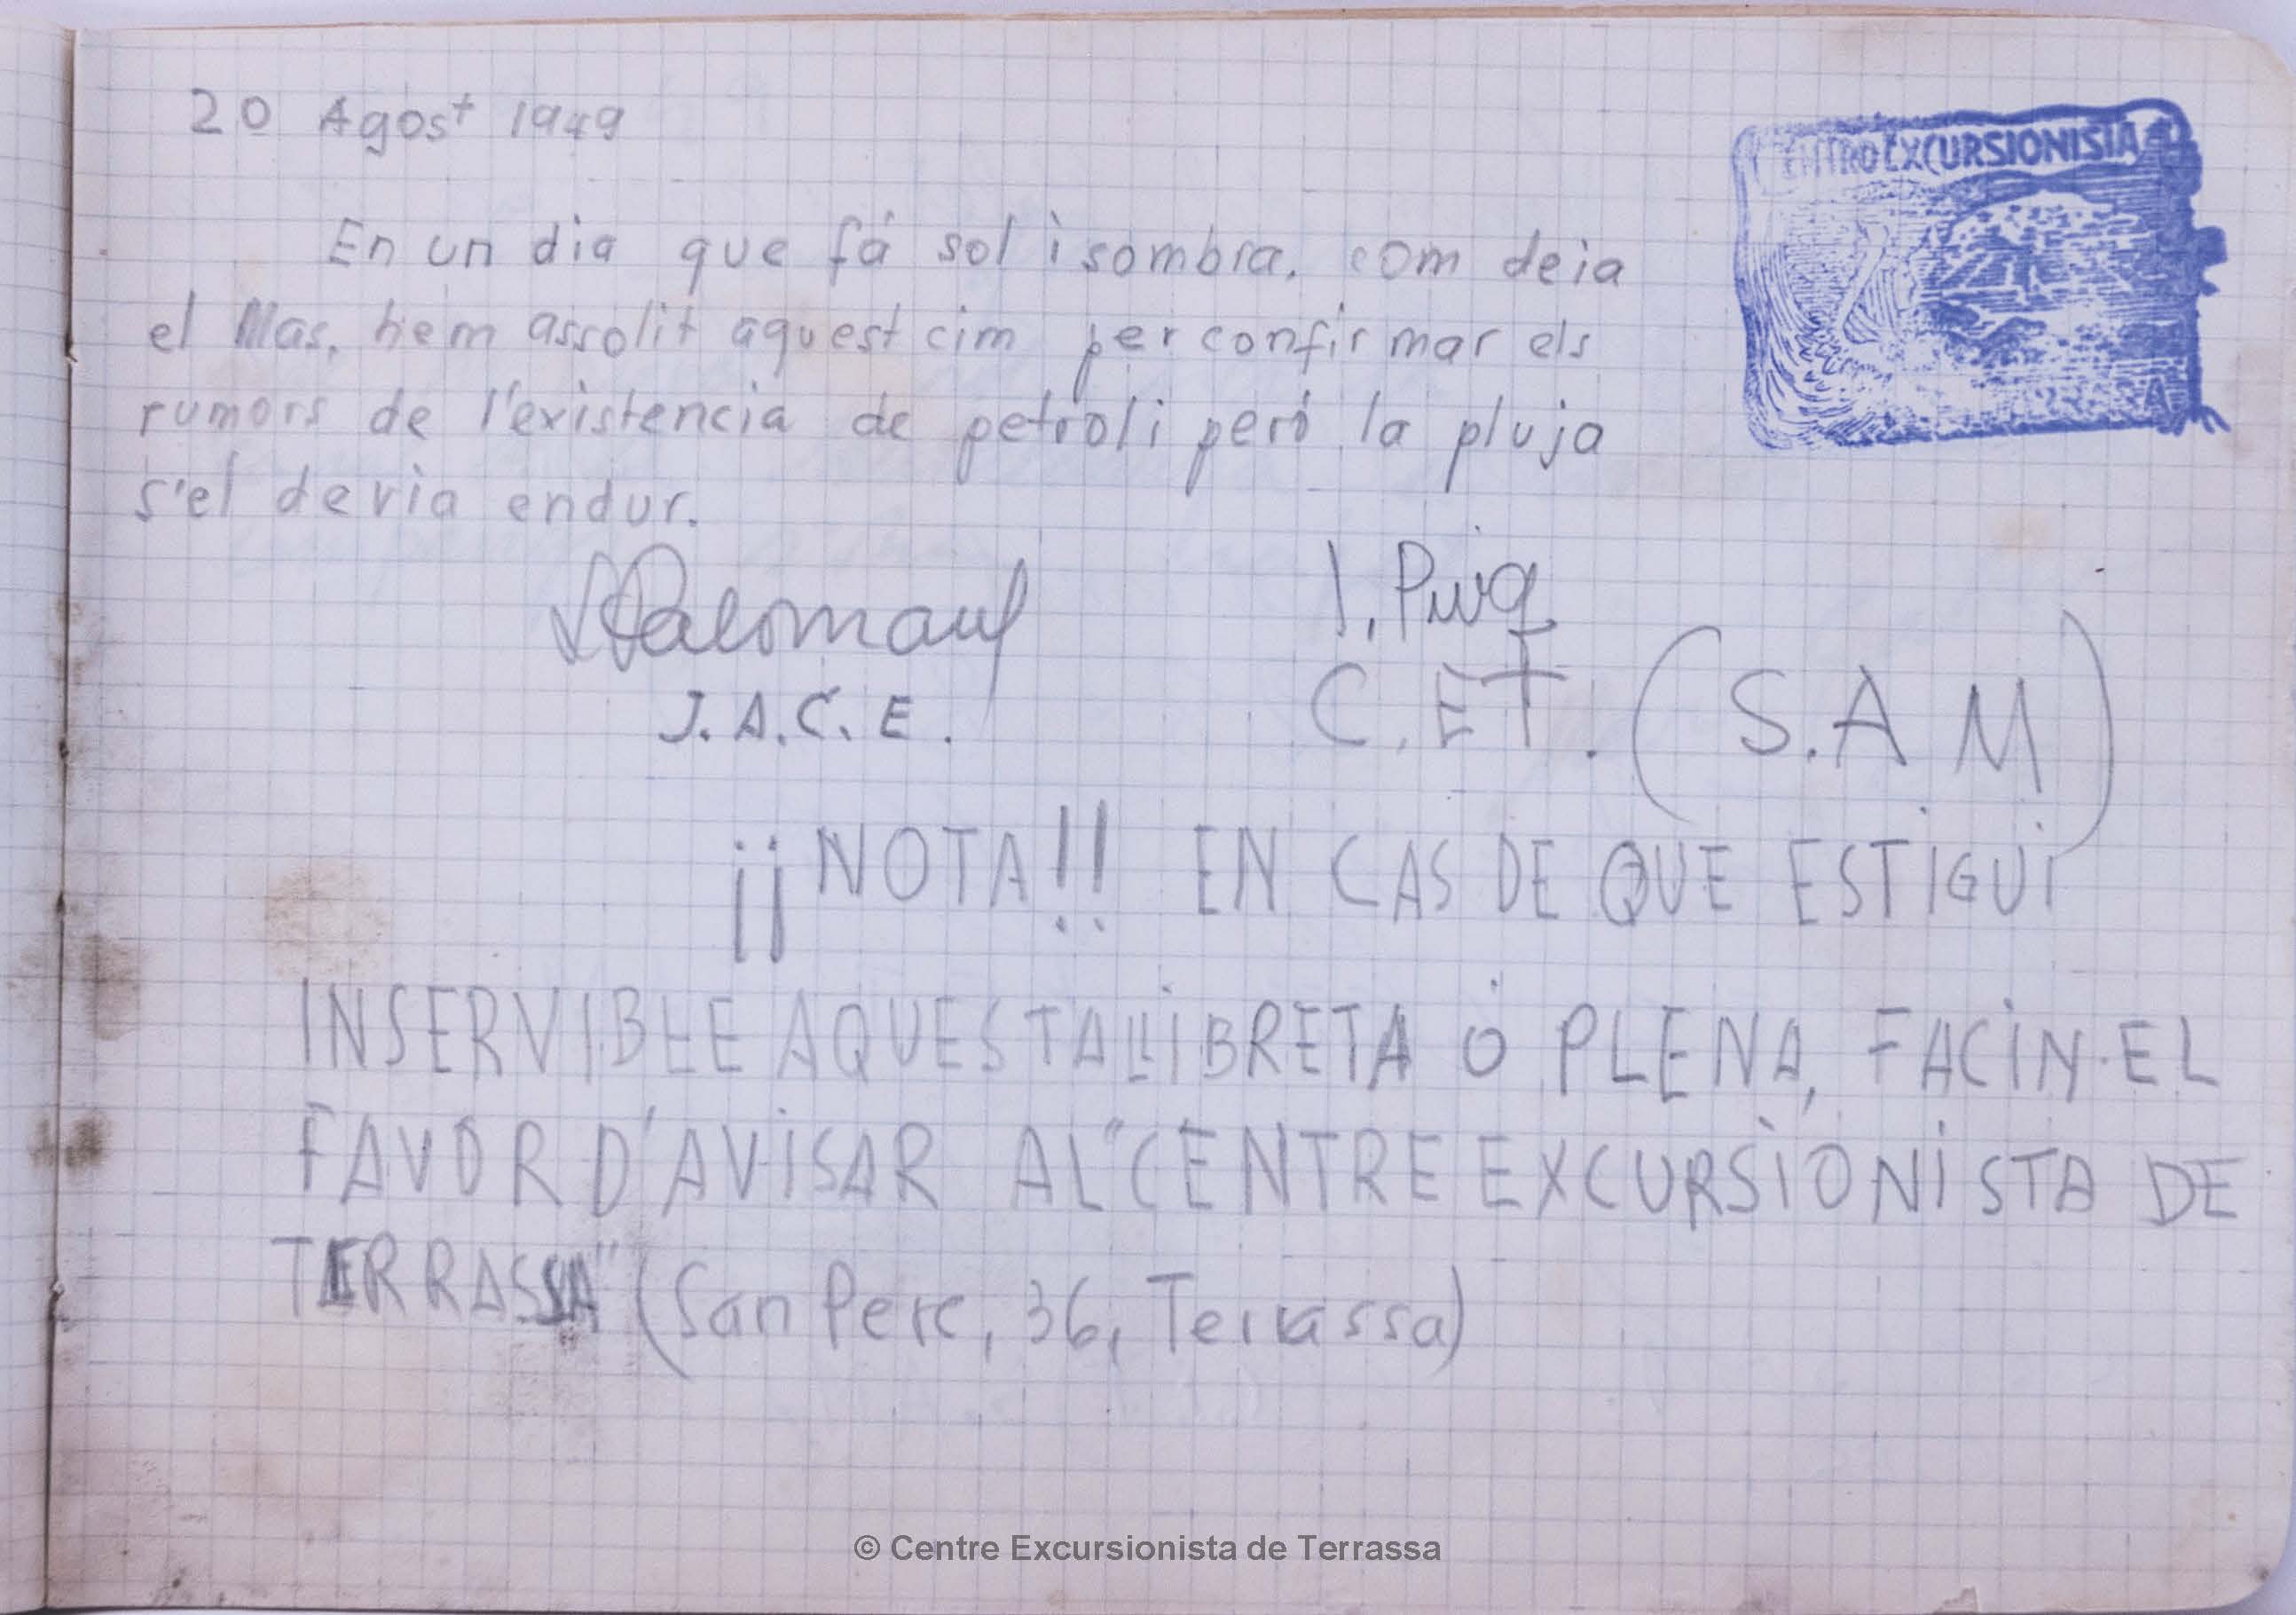 20 Agost 1949
CENTRO EXCURSIONISTA
En un dia que fá sol i sombra, com deia
el Mas, hem assolit aquest cim per confirmar els
rumors de l'existencia de petroli peró la pluja
s'el devia endur.
J. Puig
J.A.C.E.
C.ET. (S.A M)
¡¡NOTA!! EN CAS DE QUE ESTIGUI
INSERVIBLE AQUESTA LLIBRETA Ó PLENA, FACIN·EL
FAVOR D'AVISAR AL "CENTRE EXCURSIONISTA DE
TERRASSA" (San Pere, 36, Terrassa)
© Centre Excursionista de Terrassa